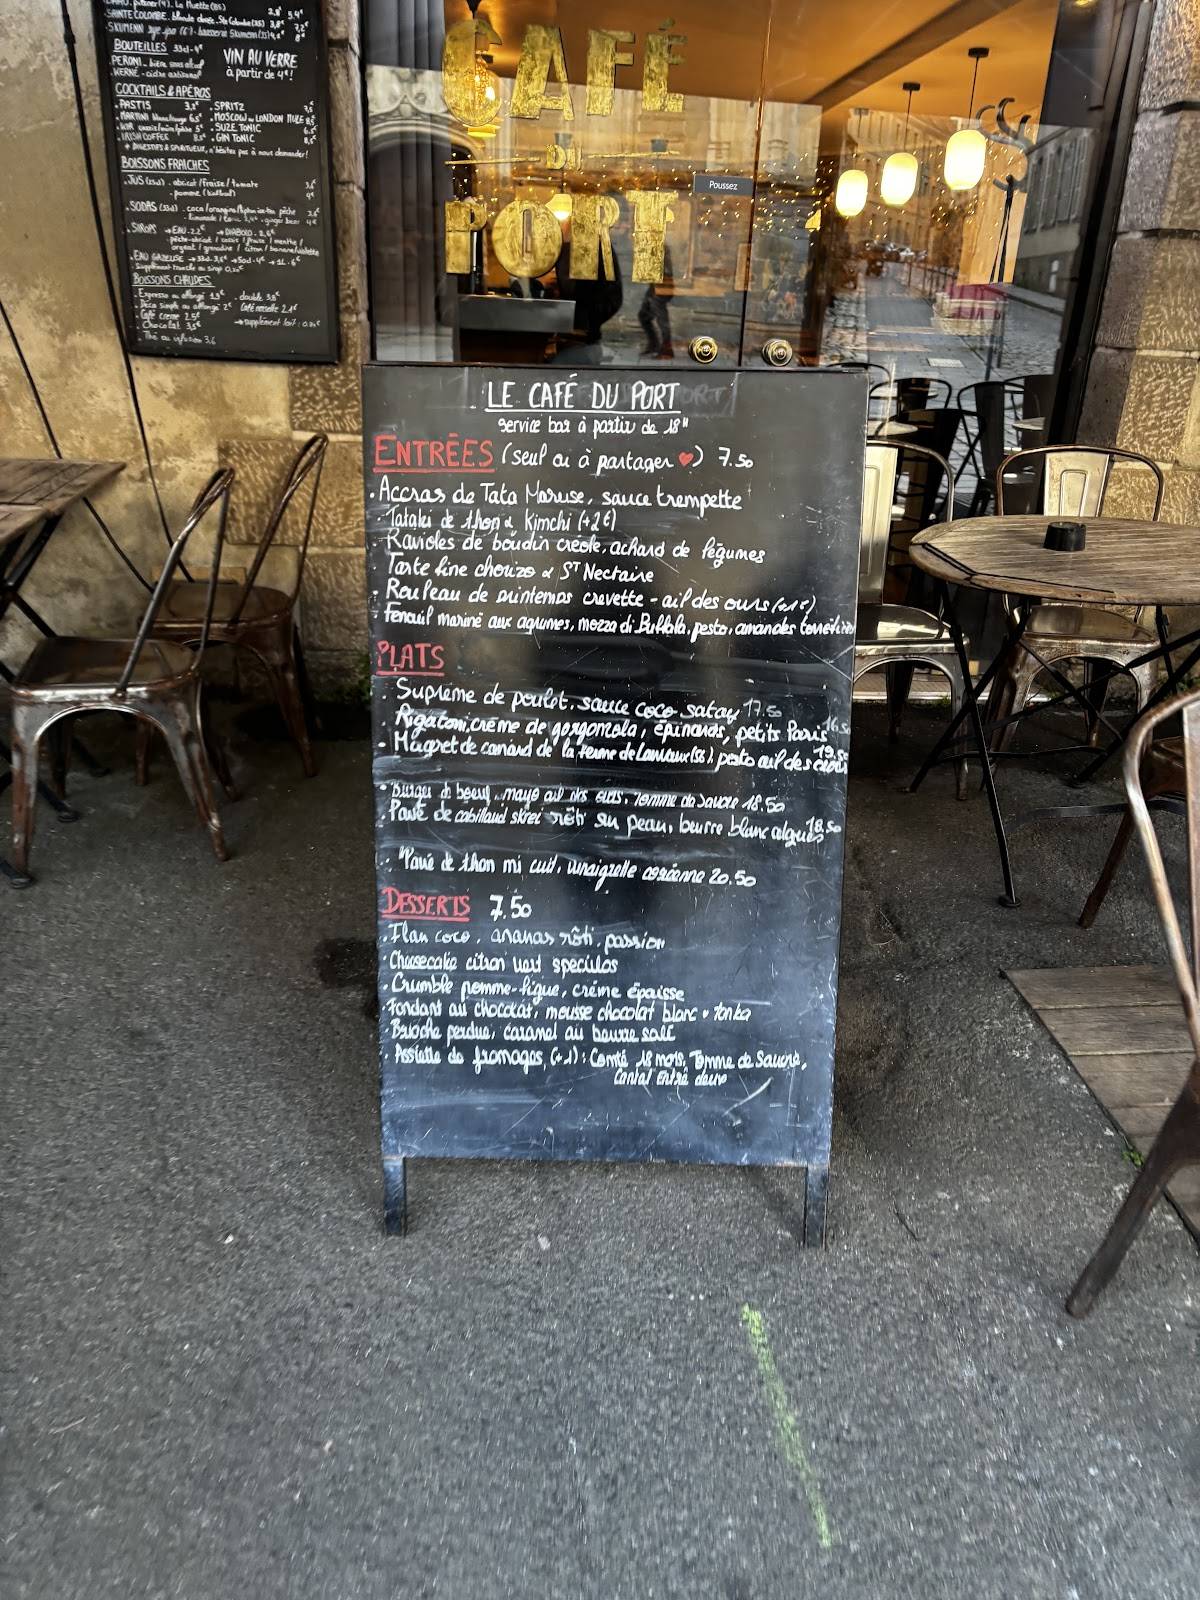 SAINTE COLOMBE
BOUTEILLES 33cl - 4€
PERONI - bière sans alcool
WERNÉ - cidre artisanal
VIN AU VERRE
à partir de 4€!
COCKTAILS & APÉROS
. PASTIS
. MARTINI
. KIR
. IRISH COFFEE
. SPRITZ
. MOSCOW ou LONDON MULE
. SUZE TONIC
. GIN TONIC
+ DIGESTIFS & SPIRITUEUX, n'hésitez pas à nous demander!
BOISSONS FRAICHES
. JUS (25cl) . abricot / fraise / tomate
- pomme
. SODAS (33cl)
. SIROPS → EAU 2.2€ → DIABOLO
. EAU GAZEUSE
BOISSONS CHAUDES
. Espresso ou allongé 1.9€ . double 3.8€
. Déca simple ou allongé 2€ Café noisette 2.1€
. Café crème 2.5€
. Chocolat 3.5€ → supplément lait :
. Thé ou infusion 3.6
CAFÉ
DU
PORT
Poussez
LE CAFÉ DU PORT
service bar à partir de 18H
ENTRÉES (seul ou à partager ♥) 7.50
. Accras de Tata Maryse, sauce trempette
. Tataki de thon & Kimchi (+2€)
. Ravioles de boudin créole, achard de légumes
. Tarte fine chorizo & ST Nectaire
. Rouleau de printemps crevette - ail des ours (+1€)
. Fenouil mariné aux agrumes, mozza di Buffala, pesto, amandes torréfiées
PLATS
. Suprême de poulet, sauce coco satay 17.50
. Rigatoni, crème de gorgonzola, épinards, petits Paris 16.50
. Magret de canard de la ferme de (56), pesto ail des ours 19.50
. Burger de boeuf, mayo ail des ours, Tomme de Savoie 18.50
. Pavé de cabillaud skrei rôti sur peau, beurre blanc algues 18.50
. Pavé de thon mi cuit, vinaigrette coréenne 20.50
DESSERTS 7.50
. Flan coco, ananas rôti, passion
. Cheesecake citron vert speculos
. Crumble pomme-figue, crème épaisse
. Fondant au chocolat, mousse chocolat blanc & tonka
. Brioche perdue, caramel au beurre salé
. Assiette de fromages (+1) : Comté 18 mois, Tomme de Savoie,
Cantal Entre deux